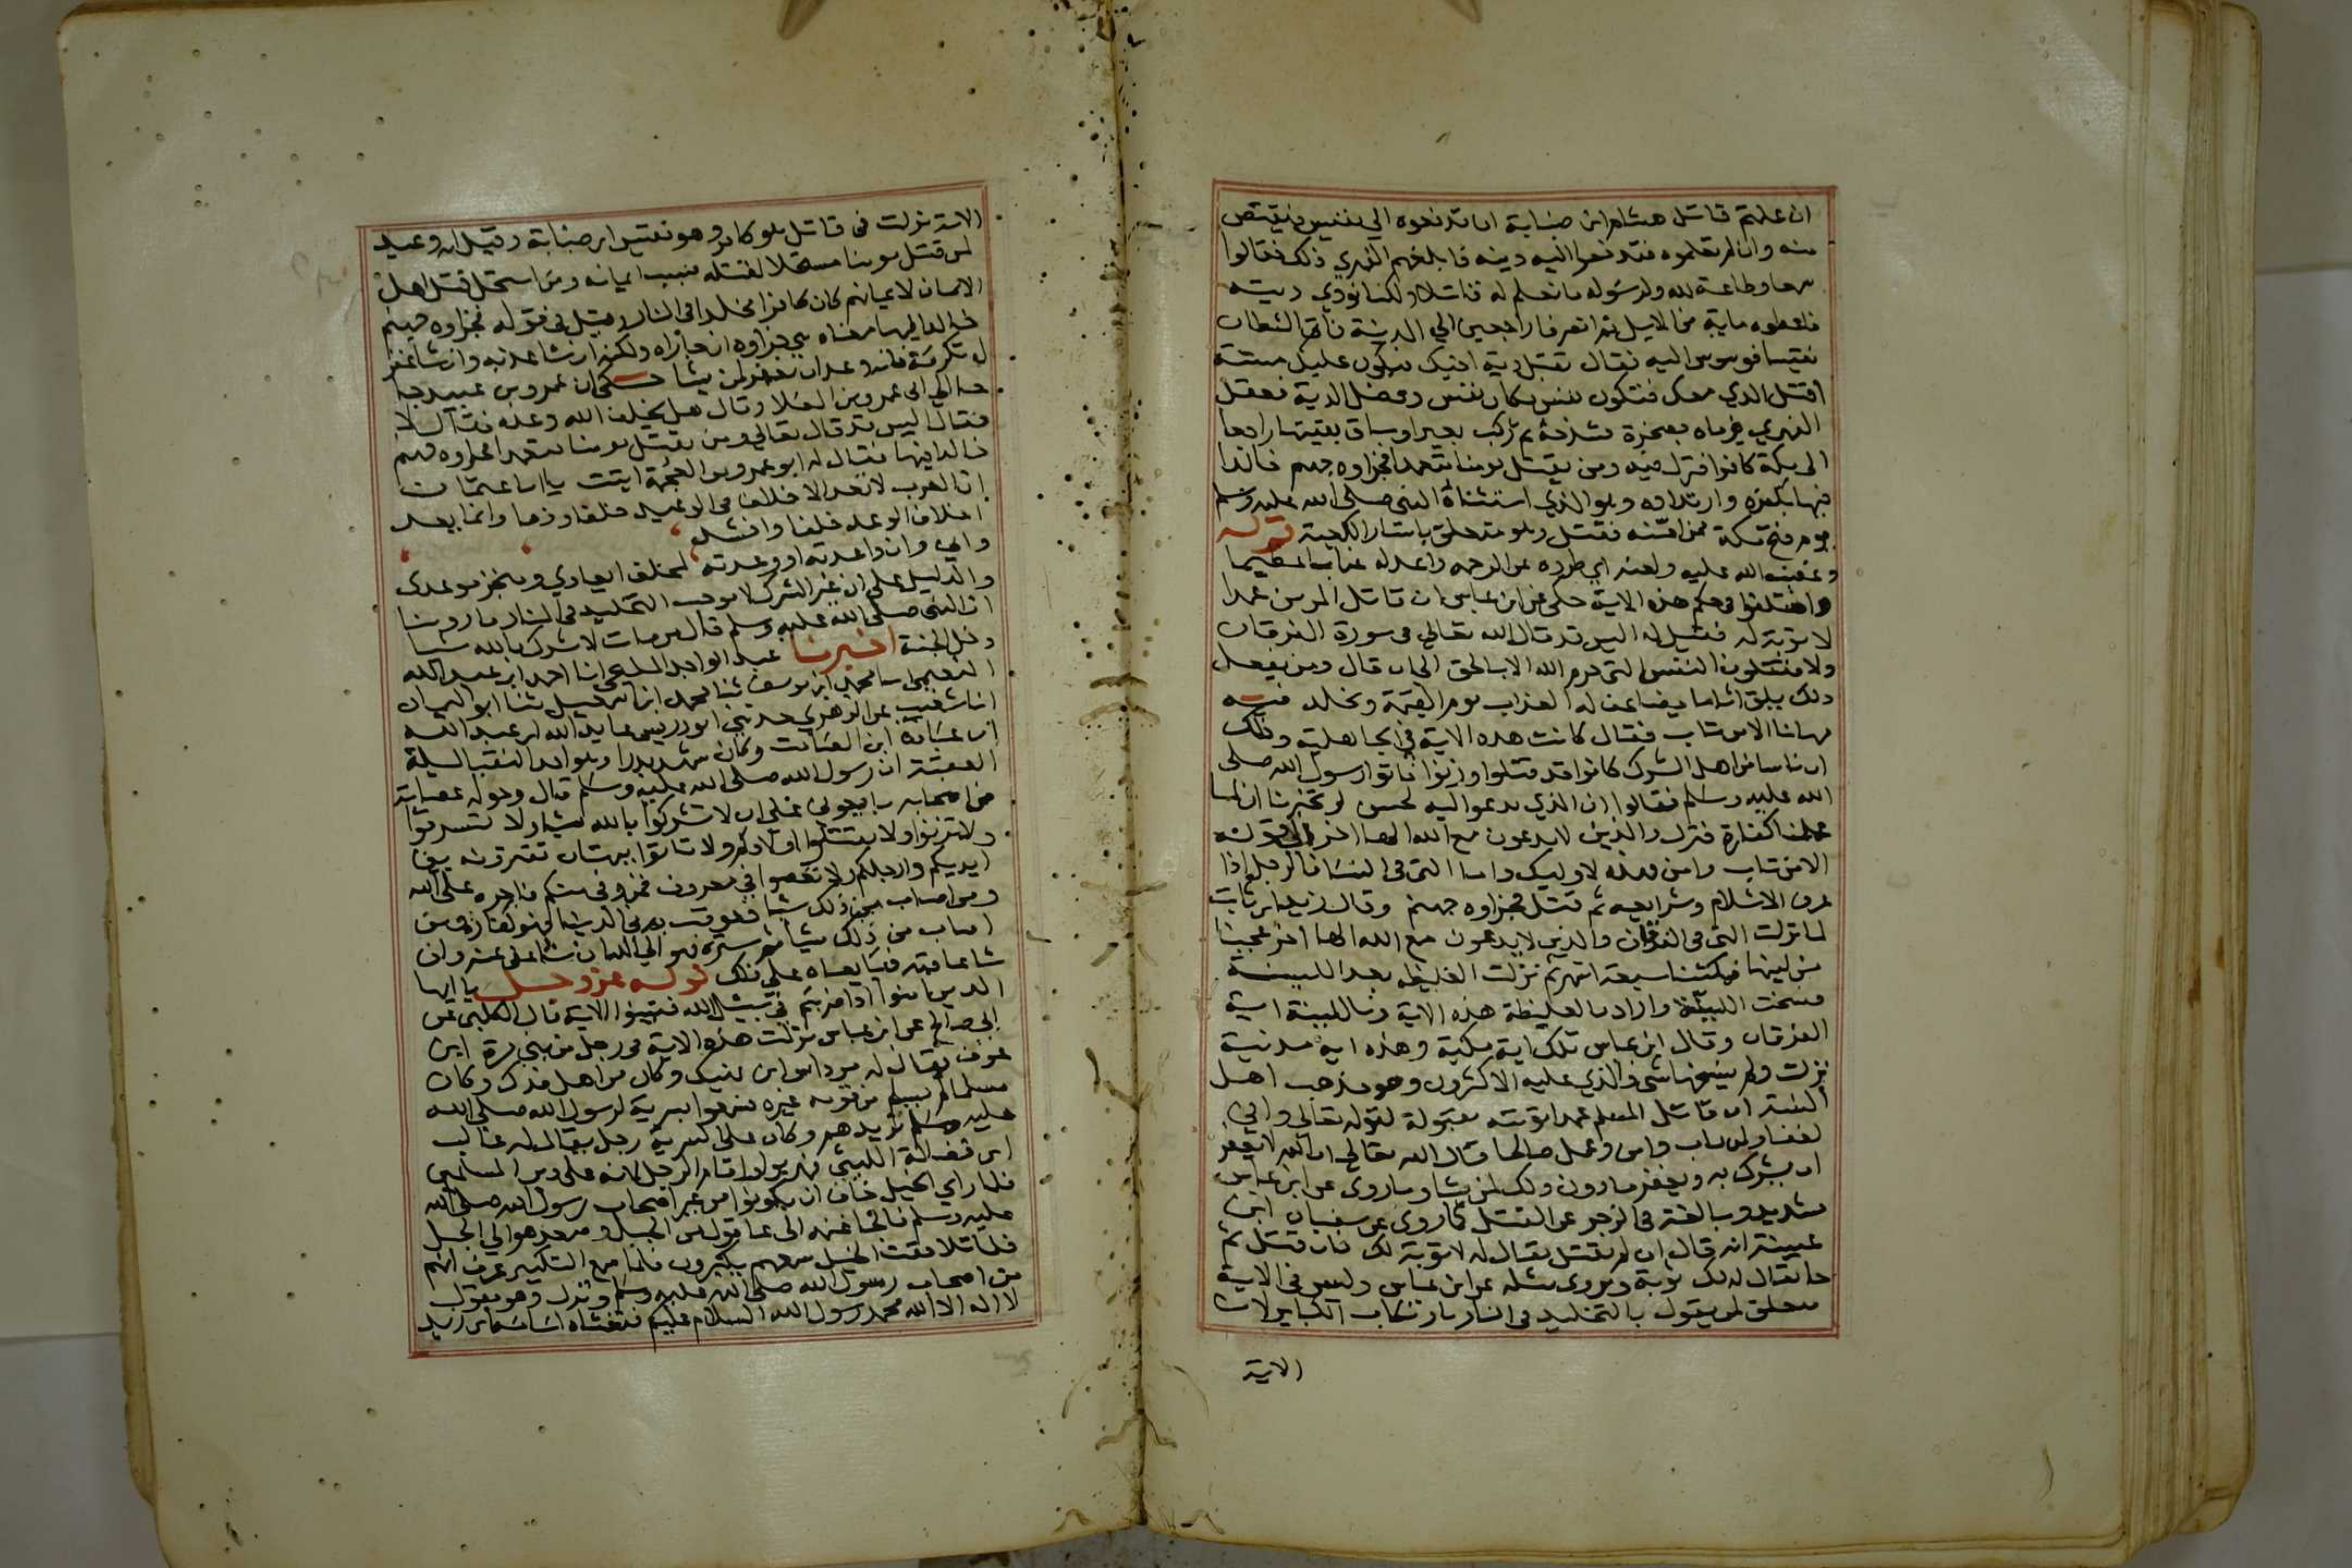 ان علمتم قاتل هشام ابن ضبابة ان تدفعوه الي نفيس فيقتص
منه وان لم تعلموه فتدفعوا اليه ديته فابلغهم الفهري ذلك فقالوا
سمعا وطاعة لله ولرسوله ما نعلم له قاتلا ولكنا نودي ديته
فاعطوه ماية من الابل ثم انصرفا راجعين الي المدينة فاتي الشيطان
نفيسا فوسوس اليه فقال تقبل دية اخيك فتكون عليك مسبة
اقتل الذي معك فتكون نفس مكان نفس وفضل الدية فغفل
الفهري فرماه بصخرة فشدخه ثم ركب بعيرا وساق بقيتها راجعا
الي مكة كافرا فنزل فيه ومن يقتل مومنا متعمدا فجزاوه جهنم خالدا
فيها بكفره وارتداده وهو الذي استثناه النبي صلي الله عليه وسلم
يوم فتح مكة ممن امنه فقتل وهو متعلق باستار الكعبة قوله
وغضب الله عليه ولعنه اي طرده عن الرحمه واعد له عذابا عظيما
واختلفوا في حكم هذه الاية حكي عن ابن عباس ان قاتل المومن عمدا
لا توبة له فقيل له اليس قد قال الله تعالي في سورة الفرقان
ولا يقتلون النفس التي حرم الله الا بالحق الي ان قال ومن يفعل
ذلك يلق اثاما يضاعف له العذاب يوم القيمة ويخلد فيه
مهانا الا من تاب فقال كانت هذه الاية في الجاهلية وذلك
ان ناسا من اهل الشرك كانوا قد قتلوا وزنوا فاتوا رسول الله صلي
الله عليه وسلم فقالوا ان الذي تدعوا اليه لحسن لو تخبرنا ان لما
عملنا كفارة فنزل والذين لا يدعون مع الله الها اخر الي قوله
الا من تاب وامن فهذه لاوليك واما التي في النسا فالرجل اذا
عرف الاسلام وشرايعه ثم قتل فجزاوه جهنم وقال زيد ابن ثابت
لما نزلت التي في الفرقان والذين لا يدعون مع الله الها اخر عجبنا
من لينها فمكثنا سبعة اشهر ثم نزلت الغليظه بعد اللينة
فنسخت اللينة واراد بالغليظة هذه الاية وباللينة اية
الفرقان وقال ابن عباس تلك اية مكية وهذه ايه مدنية
نزلت ولم ينسخها شي والذي عليه الاكثرون وهو مذهب اهل
السنة ان قاتل المسلم عمدا توبته مقبولة لقوله تعالي واني
لغفار لمن تاب وامن وعمل صالحا وقال الله تعالي ان الله لا يغفر
ان يشرك به ويغفر ما دون ذلك لمن يشا وما روي عن ابن عباس
تشديد ومبالغة في الزجر عن القتل كما روي عن سفيان ابن
عيينة انه قال ان لم يقتل يقال له لا توبة لك فان قتل ثم
جا يقال له لك توبة ويروي مثله عن ابن عباس وليس في الاية
متعلق لمن يقول بالتخليد في النار بارتكاب الكباير لان
الاية
الاية نزلت في قاتل هو كافر وهو نفيس ابن ضبابة وقيل انه وعيد
لمن قتل مومنا مستحلا لقتله بسبب ايمانه ومن استحل قتل اهل
الايمان لايمانهم كان كافرا مخلدا في النار وقيل في قوله فجزاوه جهنم
خالدا فيها معناه هي جزاوه ان جازاه ولكنه ان شا عذبه وان شا غفر
له بكرمه فانه وعد ان يغفر لمن يشا حكي ان عمرو بن عبيد جا
الي ابي عمرو بن العلا وقال هل يخلف الله وعده فقال لا
فقال اليس قد قال تعالي ومن يقتل مومنا متعمدا فجزاوه جهنم
خالدا فيها فقال له ابو عمرو من العجمة اتيت يا ابا عثمان
ان العرب لا تعد الاخلاف في الوعيد خلفا وذما وانما يعد
اخلاف الوعد خلفا وانشد
واني وان اوعدته او وعدته لمخلف ايعادي ومنجز موعدي
والدليل علي ان غير الشرك لا يوجب التخليد في النار ما روينا
ان النبي صلي الله عليه وسلم قال من مات لا يشرك بالله شيا
دخل الجنة اخبرنا عبد الواحد المليحي انا احمد ابن عبد الله
النعيمي انا محمد ابن يوسف ثنا محمد ابن اسمعيل ثنا ابو اليمان
انا شعيب عن الزهري حدثني ابو ادريس عايذ الله ابن عبد الله
ان عبادة ابن الصامت وكان شهد بدرا وهو احد النقبا ليلة
العقبة ان رسول الله صلي الله عليه وسلم قال وحوله عصابة
من اصحابه بايعوني علي ان لا تشركوا بالله شيا ولا تسرقوا
ولا تزنوا ولا تقتلوا اولادكم ولا تاتوا ببهتان تفترونه بين
ايديكم وارجلكم ولا تعصوا في معروف فمن وفي منكم فاجره علي الله
ومن اصاب من ذلك شيا فعوقب به في الدنيا فهو كفارة ومن
اصاب من ذلك شيا ثم ستره فهو الي الله ان شا عفا عنه وان
شا عاقبه فبايعناه علي ذلك قوله عز وجل يا ايها
الذين امنوا اذا ضربتم في سبيل الله فتبينوا الاية قال الكلبي عن
ابي صالح عن ابن عباس نزلت هذه الاية في رجل من بني مرة ابن
عوف يقال له مرداس ابن نهيك وكان من اهل فدك وكان
مسلما لم يسلم من قومه غيره فسمعوا بسرية لرسول الله صلي الله
عليه وسلم تريدهم وكان علي السرية رجل يقال له غالب
ابن فضالة الليثي فهربوا واقام الرجل لانه علي دين المسلمين
فلما راي الخيل خاف ان يكونوا من غير اصحاب رسول الله صلي الله
عليه وسلم فالجا غنمه الي عاقول من الجبل وصعد هو الي الجبل
فلما تلاحقت الخيل سمعهم يكبرون فلما سمع التكبير عرف انهم
من اصحاب رسول الله صلي الله عليه وسلم ونزل وهو يقول
لا اله الا الله محمد رسول الله السلام عليكم فتغشاه اسامة ابن زيد